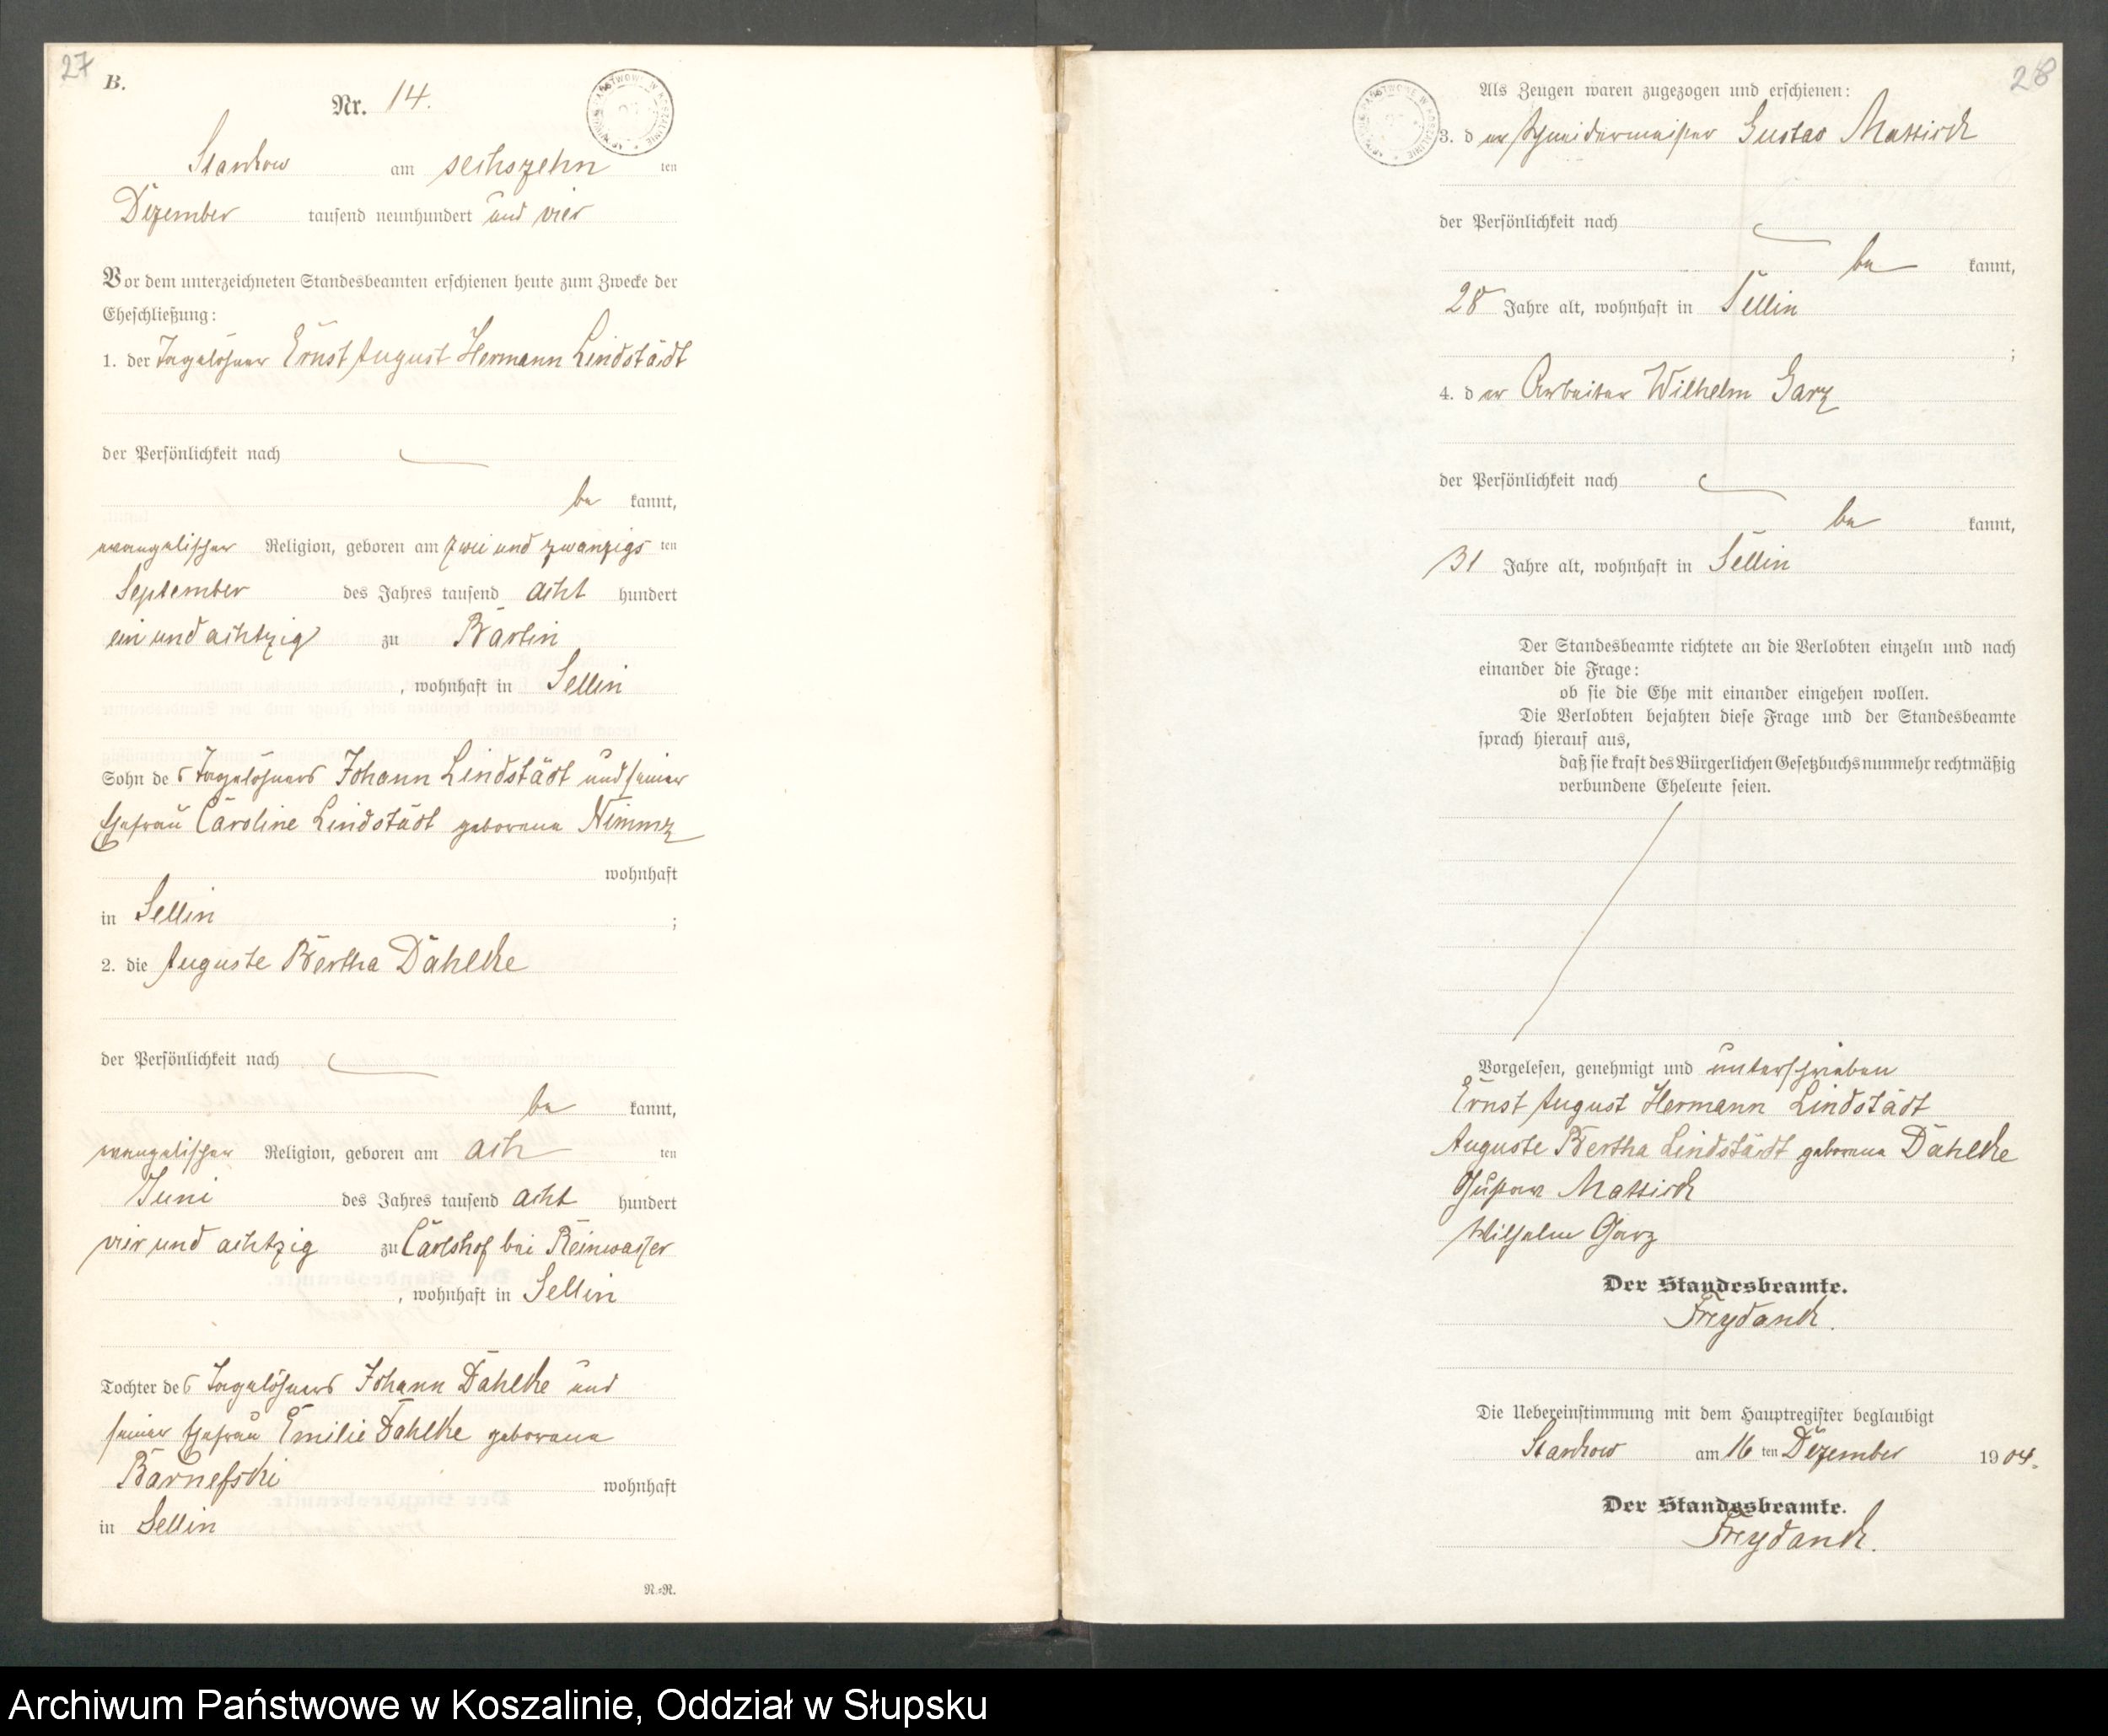 27
B.
Nr. 14.
Starkow am sechszehn ten
Dezember tausend neunhundert und vier
Vor dem unterzeichneten Standesbeamten erschienen heute zum Zwecke der
Eheschließung:
1. der Tagelöhner Ernst August Hermann Lindstädt
der Persönlichkeit nach
be kannt,
evangelischer Religion, geboren am zwei und zwanzigs ten
September des Jahres tausend acht hundert
ein und achtzig zu Bartin
, wohnhaft in Sellin
Sohn des Tagelöhners Johann Lindstädt und seiner
Ehefrau Caroline Lindstädt geborene Nimmz
wohnhaft
in Sellin ;
2. die Auguste Bertha Dahlke
der Persönlichkeit nach
be kannt,
evangelischer Religion, geboren am ach ten
Juni des Jahres tausend acht hundert
vier und achtzig zu Carlshof bei Reinwasser
, wohnhaft in Sellin
Tochter des Tagelöhners Johann Dahlke und
seiner Ehefrau Emilie Dahlke geborene
Barnefski wohnhaft
in Sellin
N.=N.
28
Als Zeugen waren zugezogen und erschienen:
3. der Schneidermeister Gustav Massirck
der Persönlichkeit nach
be kannt,
28 Jahre alt, wohnhaft in Sellin
;
4. der Arbeiter Wilhelm Garz
der Persönlichkeit nach
be kannt,
31 Jahre alt, wohnhaft in Sellin
Der Standesbeamte richtete an die Verlobten einzeln und nach
einander die Frage:
ob sie die Ehe mit einander eingehen wollen.
Die Verlobten bejahten diese Frage und der Standesbeamte
sprach hierauf aus,
daß sie kraft des Bürgerlichen Gesetzbuchs nunmehr rechtmäßig
verbundene Eheleute seien.
Vorgelesen, genehmigt und unterschrieben
Ernst August Hermann Lindstädt
Auguste Bertha Lindstädt geborene Dahlke
Gustav Massirck
Wilhelm Garz
Der Standesbeamte.
Freydanck.
Die Uebereinstimmung mit dem Hauptregister beglaubigt
Starkow am 16 ten Dezember 1904.
Der Standesbeamte.
Freydanck.
Archiwum Państwowe w Koszalinie, Oddział w Słupsku